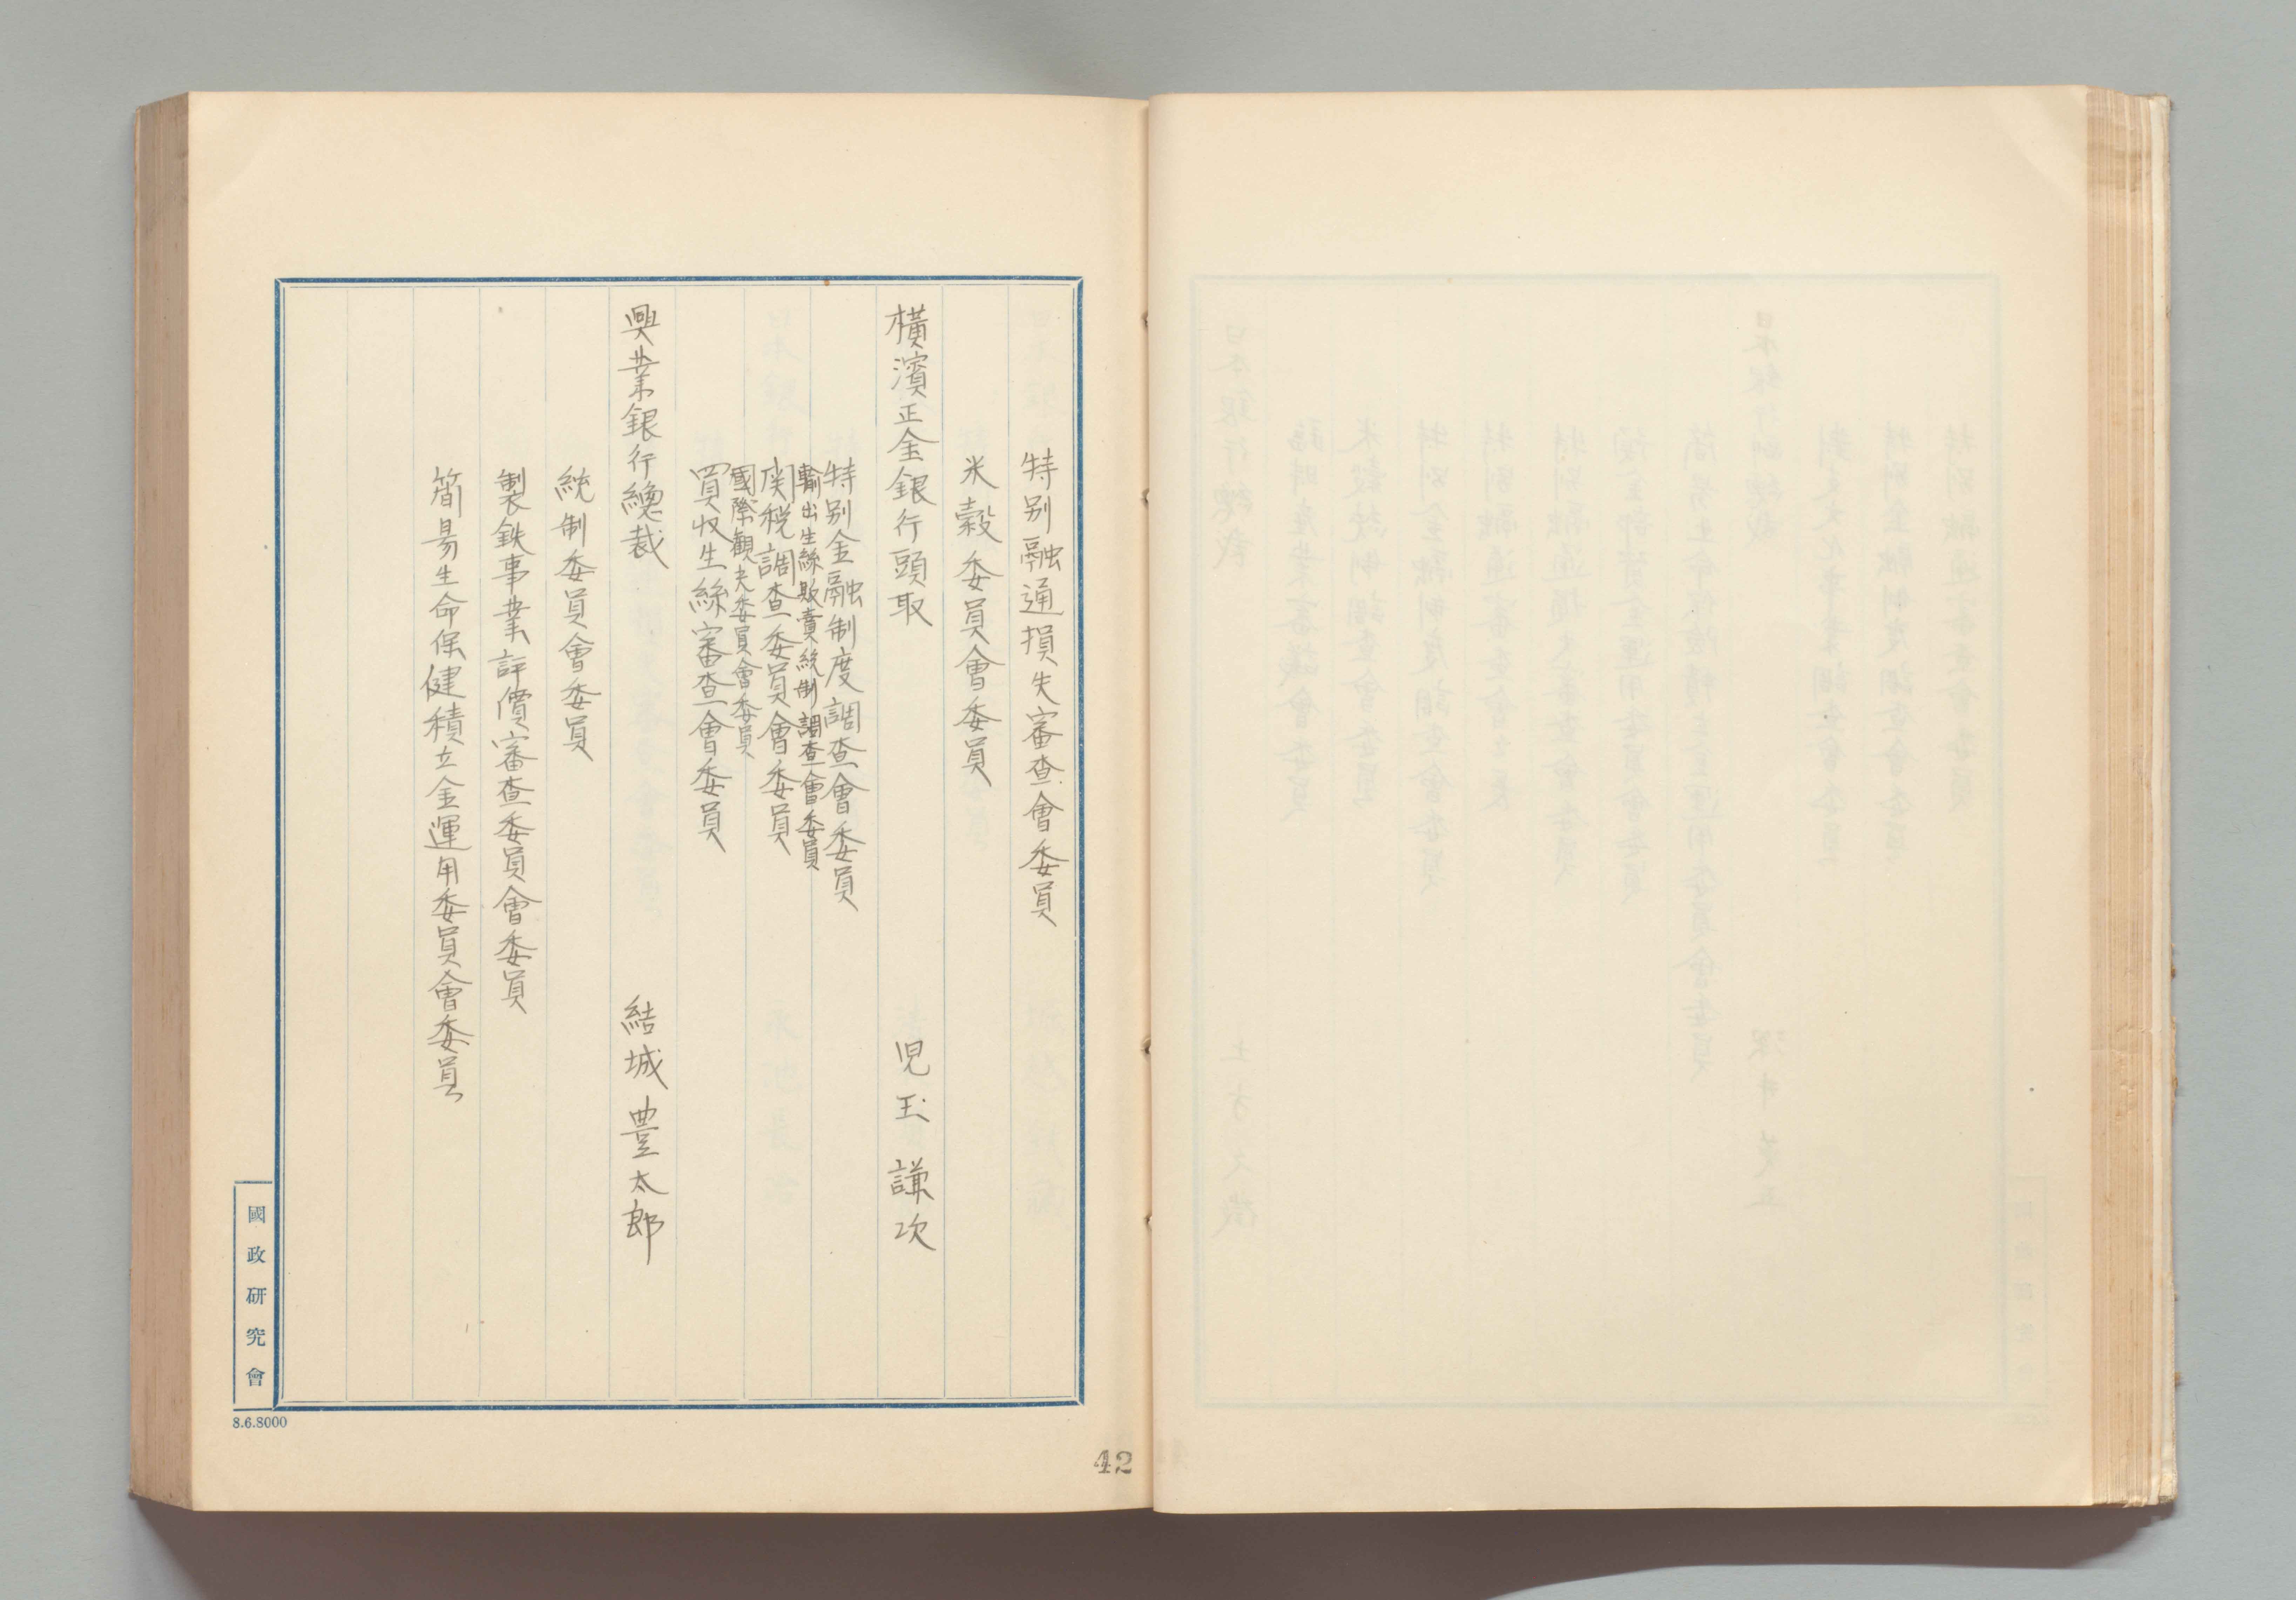 特別融通損失審査會委員
米穀委員會委員
橫濱正金銀行頭取　児玉謙次
特別金融制度調査會委員
輸出生絲販賣統制調査會委員
関税調査委員會委員
國際観光委員會委員
買収生絲審査會委員
興業銀行總裁　結城豊太郎
統制委員會委員
製鉄事業評價審査委員會委員
簡易生命保健積立金運用委員會委員
國政研究會
8.6.8000
42